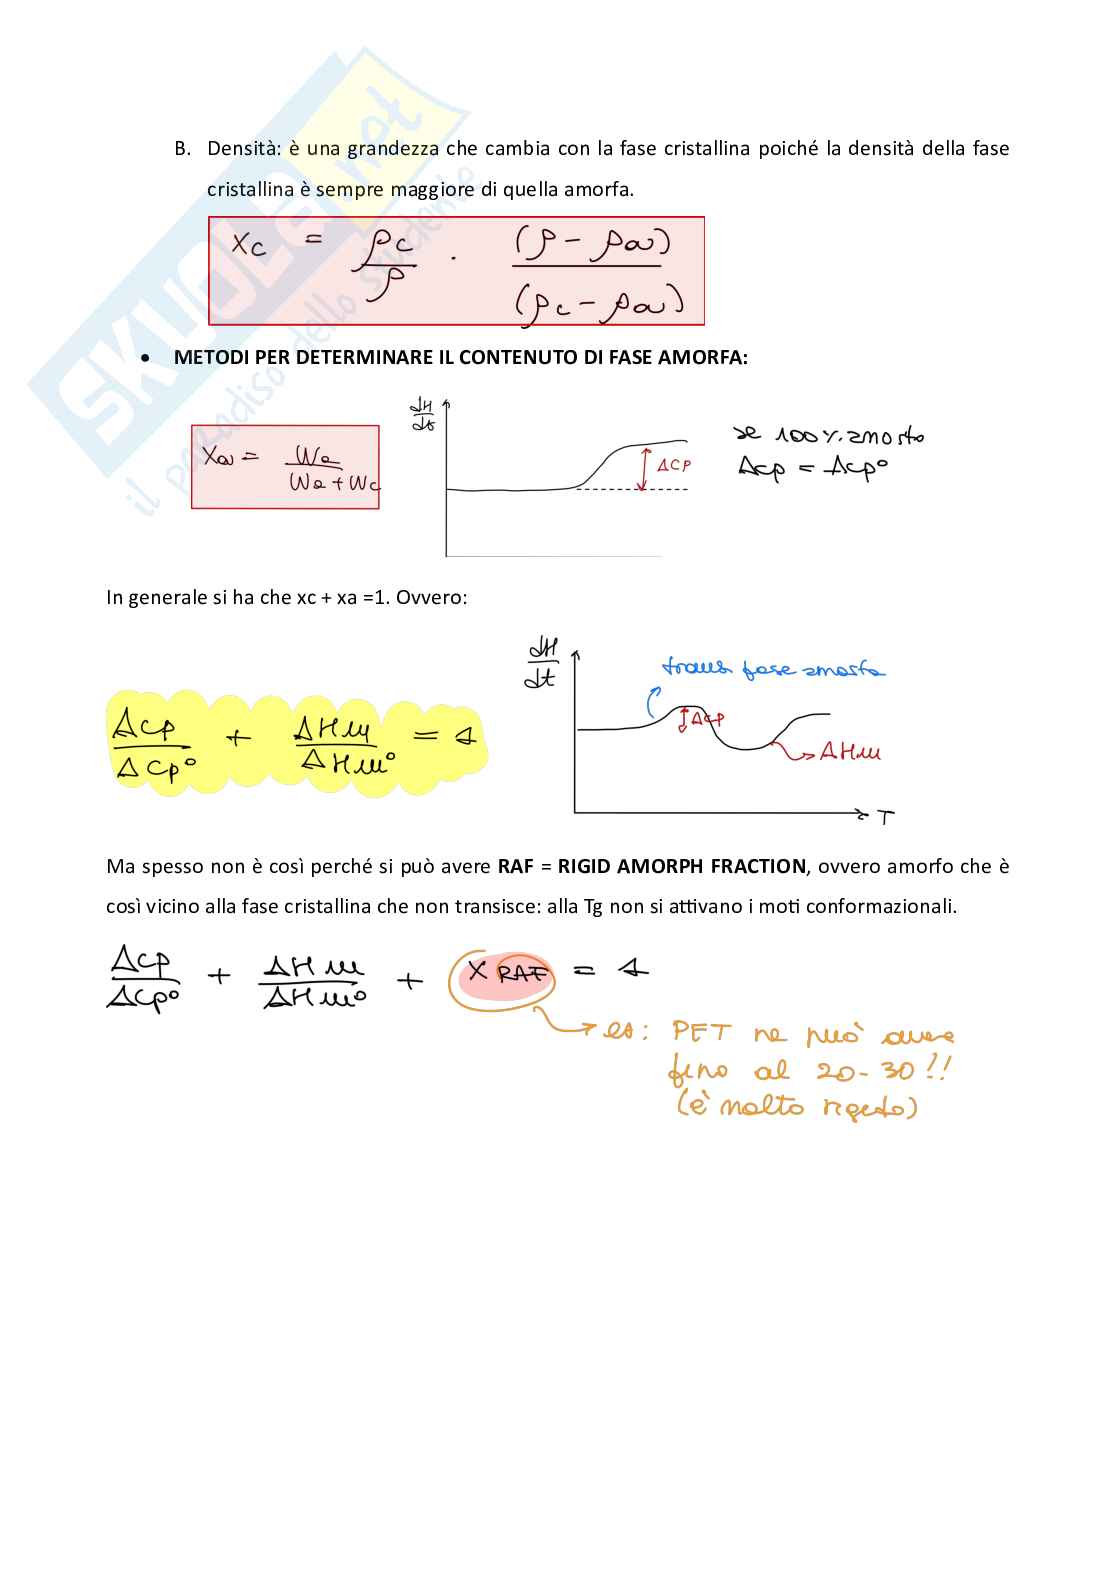 B. Densità: è una grandezza che cambia con la fase cristallina poiché la densità della fase
cristallina è sempre maggiore di quella amorfa.
xc = ρc/ρ · (ρ - ρa)/(ρc - ρa)
• METODI PER DETERMINARE IL CONTENUTO DI FASE AMORFA:
xa = Wa/(Wa + Wc)
dH/dt
ΔCP
se 100% amorfo
Δcp = Δcp°
In generale si ha che xc + xa =1. Ovvero:
Δcp/ΔCp° + ΔHm/ΔHm° = 1
dH/dt
trans fase amorfa
ΔCP
ΔHm
T
Ma spesso non è così perché si può avere RAF = RIGID AMORPH FRACTION, ovvero amorfo che è
così vicino alla fase cristallina che non transisce: alla Tg non si attivano i moti conformazionali.
Δcp/ΔCp° + ΔHm/ΔHm° + X RAF = 1
es: PET ne può avere
fino al 20-30!!
(è molto rigido)
SKUOLA.net
il paradiso dello studente